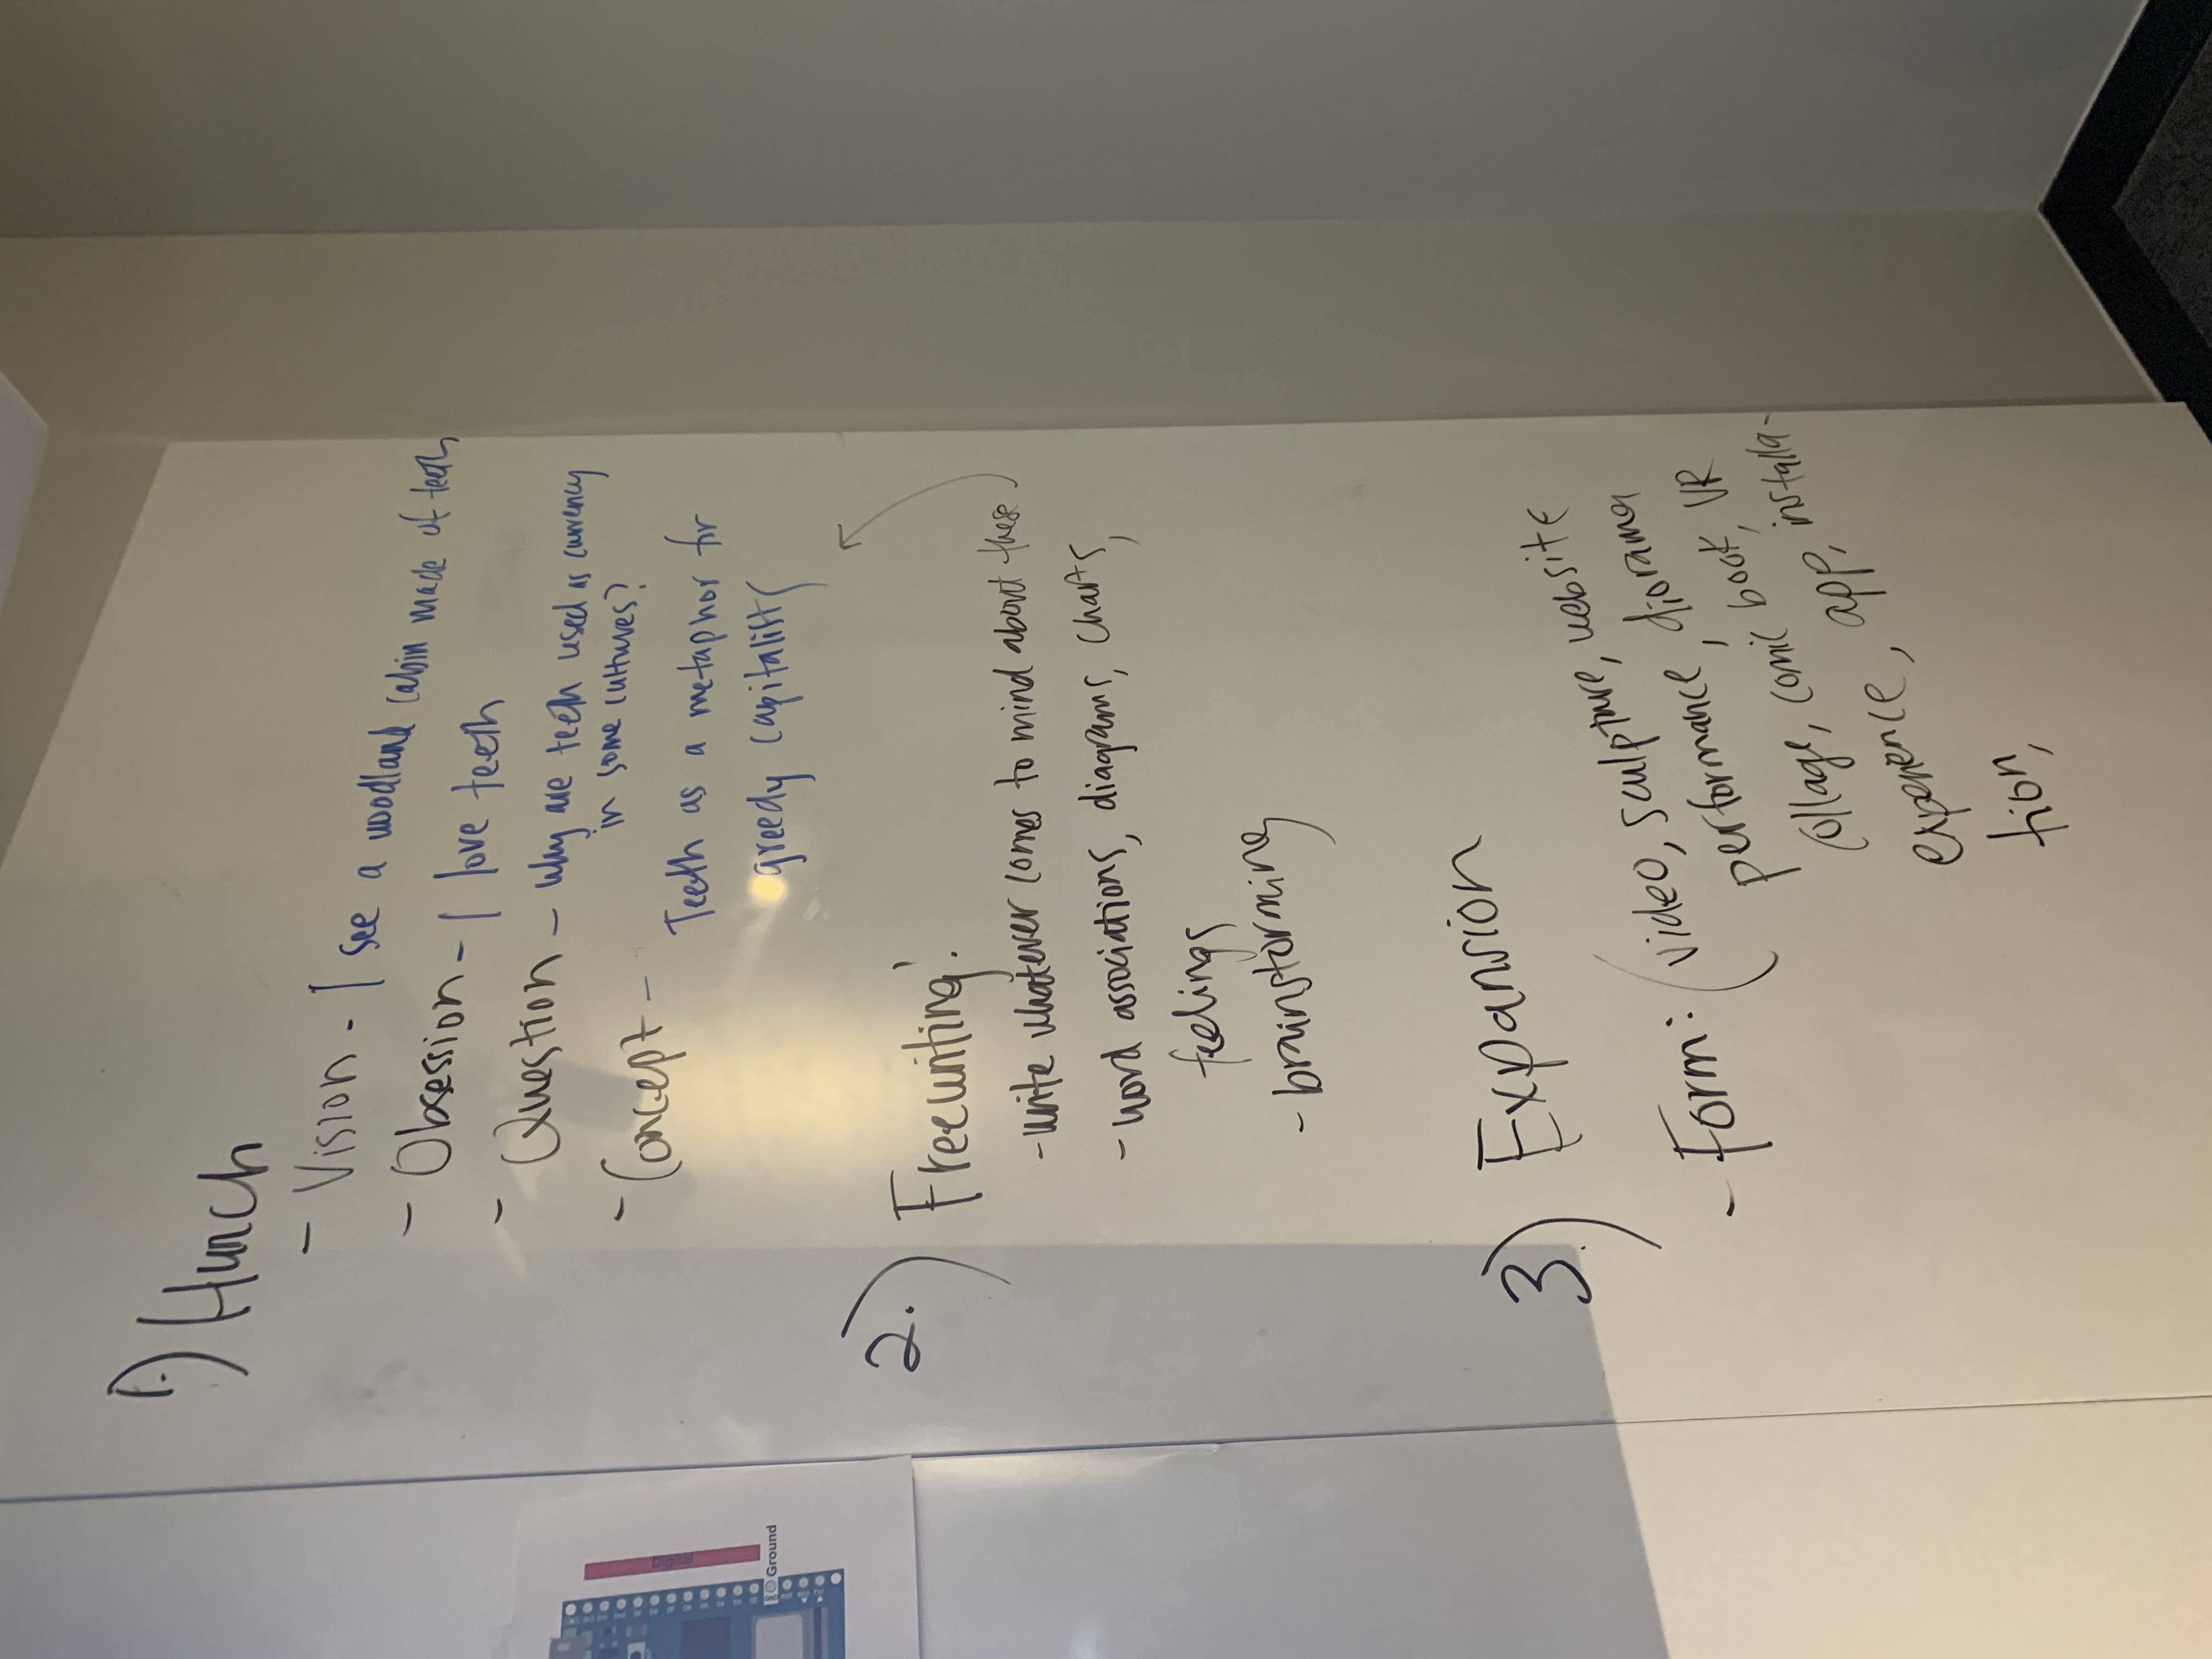 1.) Hunch
- Vision - I see a woodland cabin made of teeth
- Obsession - I love teeth
- Question - why are teeth used as currency
in some cultures?
- Concept -
Teeth as a metaphor for
greedy capitalists
Ground
2.) Freewriting!
- write whatever comes to mind about these
- word associations, diagrams, charts,
feelings
- brainstorming
3.) Expansion
- Form: (video, sculpture, website
performance, diorama
collage, comic book, VR
experience, app, installa-
tion,